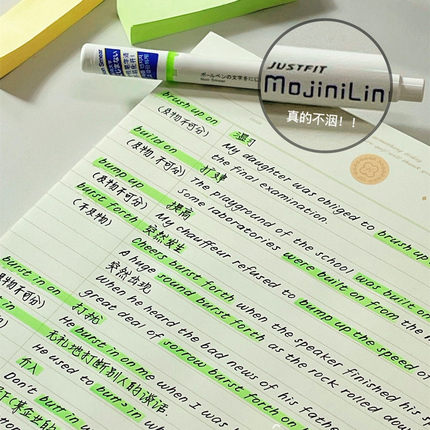 JUSTFIT
MojiniLin
真的不洇！！
ボールペンの文字をにじ
Non Smear
brush up on
(及物不可分)
温习
My daughter was obliged to brush up
the final examination
build on
(及物,不可分)
The playground of the school was built on
Some laboratories were built on from the
bump up
(及物可分)
提高
My chauffeur refused to bump up the speed
burst forth
(不及物)
突然发生
Cheers burst forth when the speaker finished his
突然出现
A huge sound burst forth as the rock rolled dow
When he heard the bad news of his fath
great deal of sorrow burst forth
burst in on
打扰
He burst in on me when I was
无礼地打断别人的谈话
He used to burst in w
介入
Don't burst in